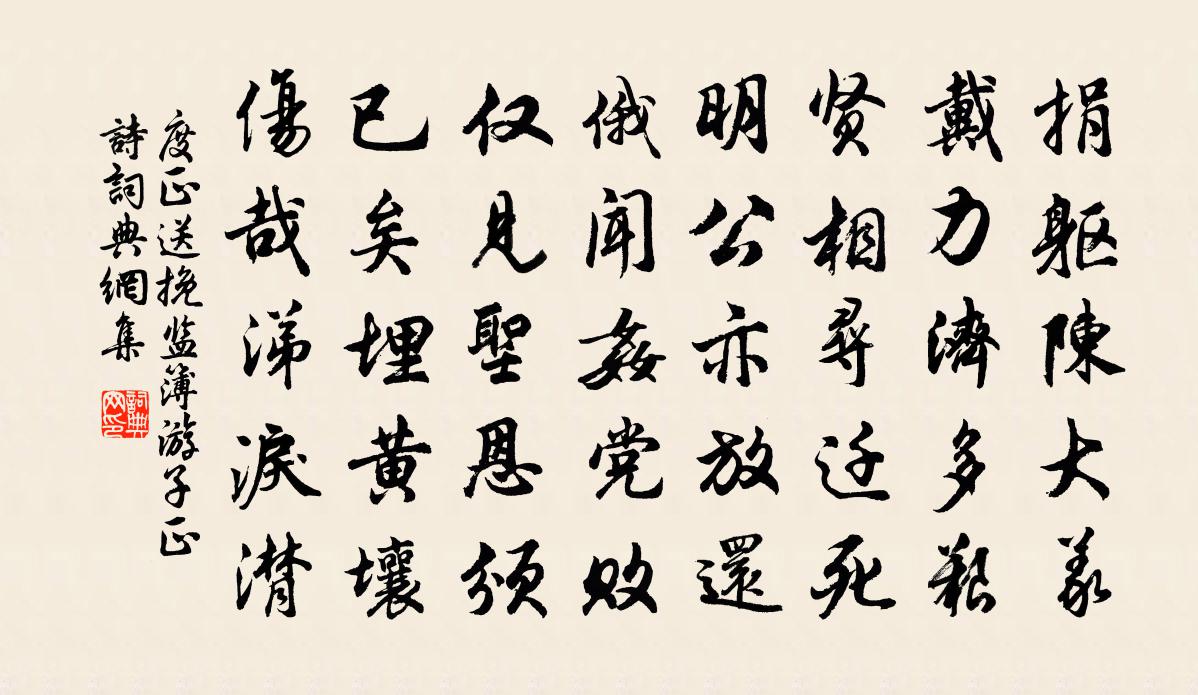 捐躯陳大义
戴力濟多艱
贤相尋迁死
明公亦放還
俄闻姦党败
仅見聖恩颁
已矣埋黄壤
傷哉涕淚潸
度正送挽监簿游子正
詩詞典網集
詞典网印